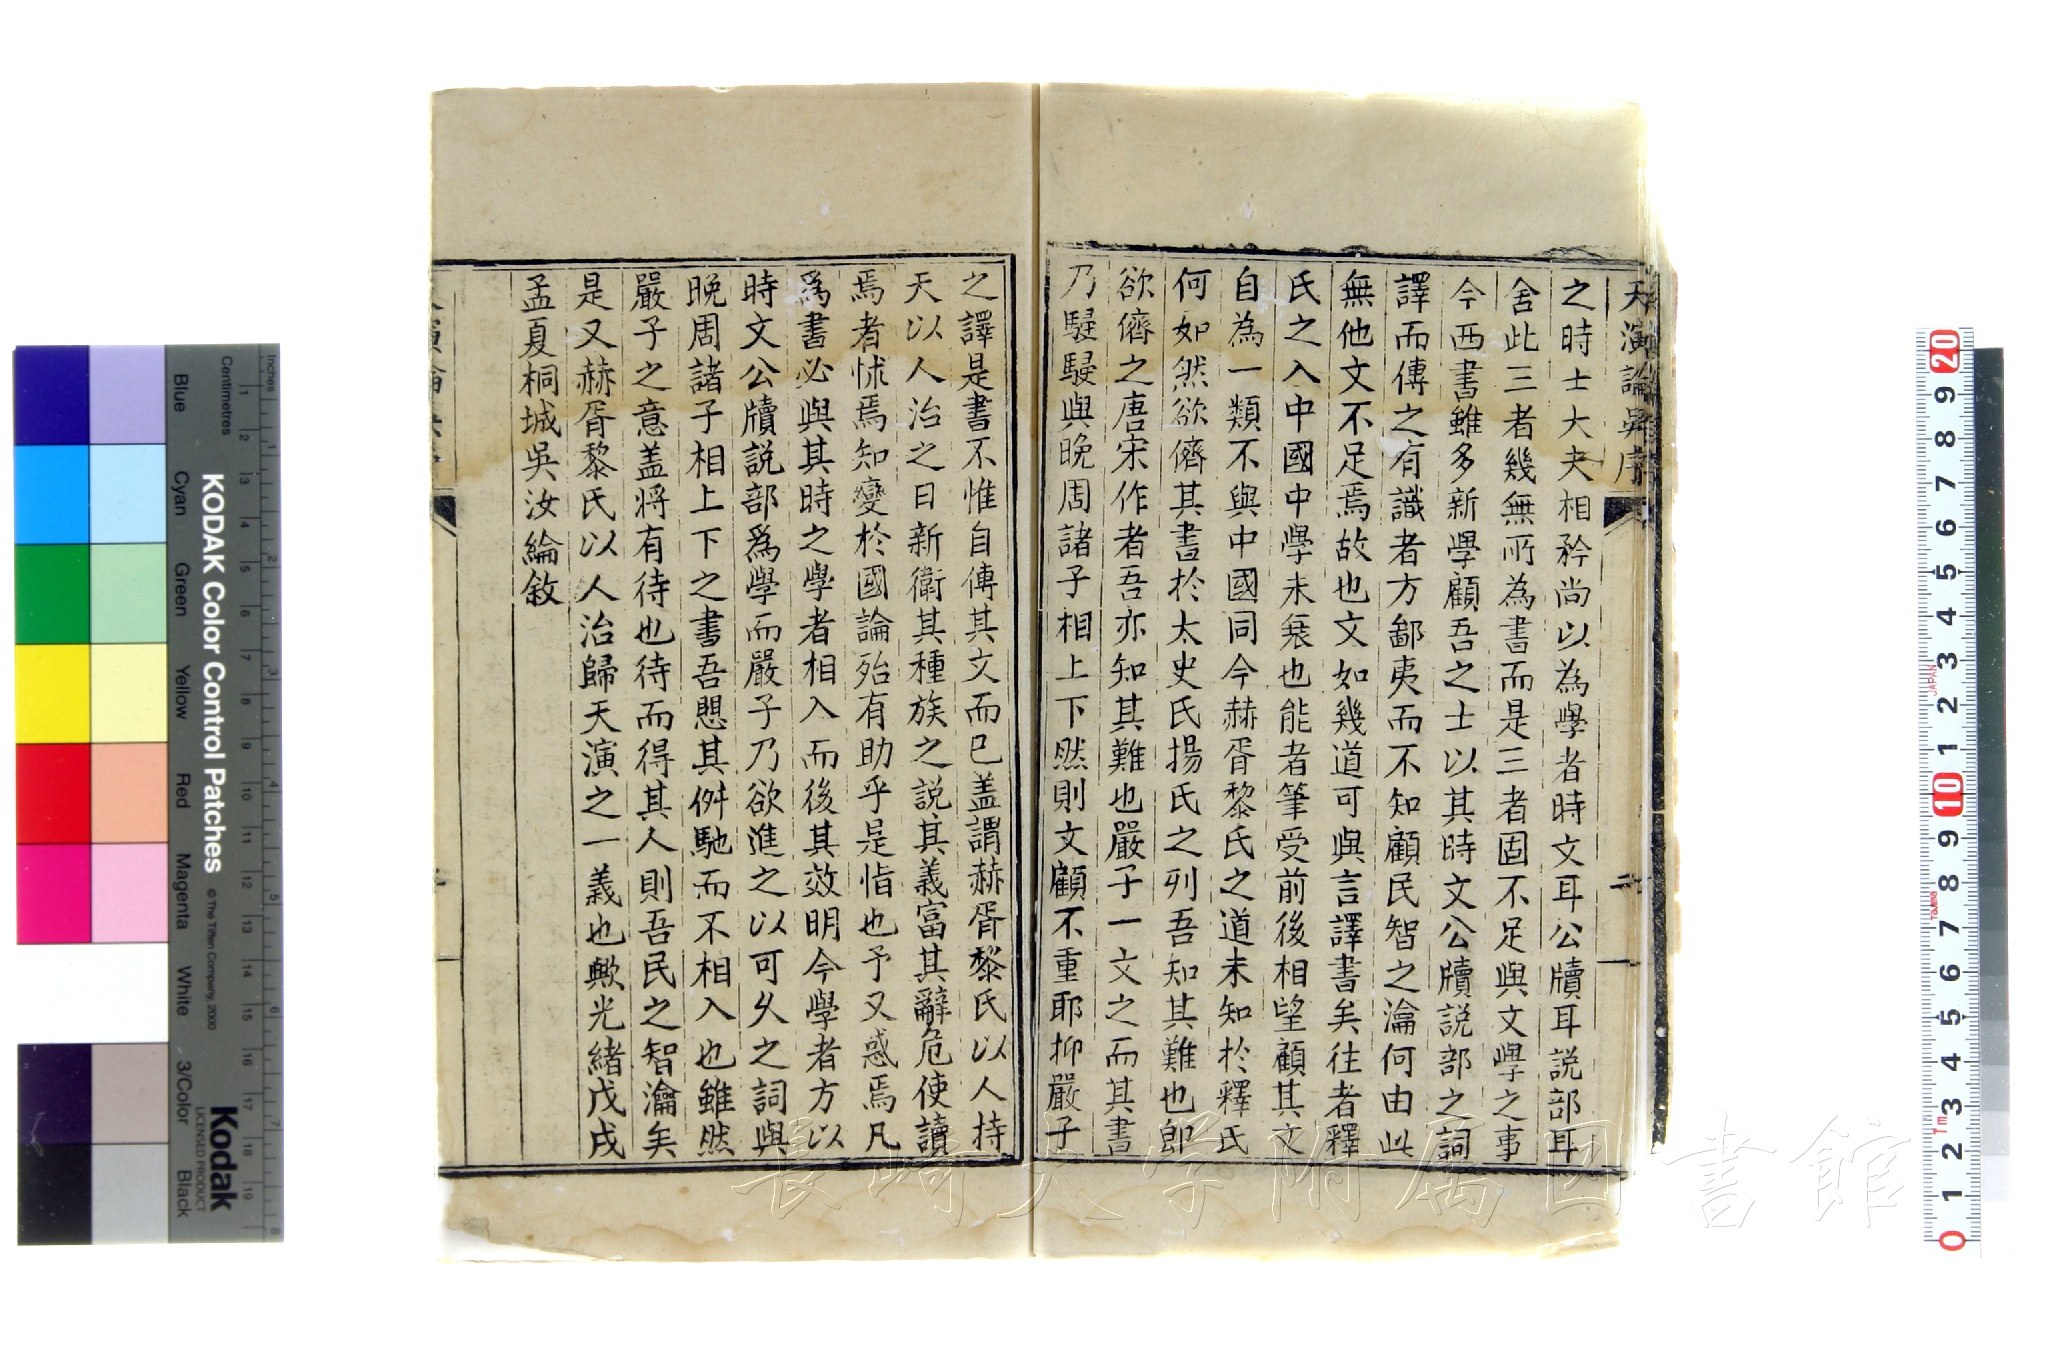 天演論吳序
之時士大夫相矜尚以為學者時文耳公牘耳説部耳
舍此三者幾無所為書而是三者固不足與文學之事
今西書雖多新學顧吾之士以其時文公牘説部之詞
譯而傳之有識者方鄙夷而不知顧民智之瀹何由此
無他文不足焉故也文如幾道可與言譯書矣往者釋
氏之入中國中學未衰也能者筆受前後相望顧其文
自為一類不與中國同今赫胥黎氏之道未知於釋氏
何如然欲儕其書於太史氏揚氏之列吾知其難也即
欲儕之唐宋作者吾亦知其難也嚴子一文之而其書
乃駸駸與晚周諸子相上下然則文顧不重耶抑嚴子
之譯是書不惟自傳其文而已盖謂赫胥黎氏以人持
天以人治之日新衛其種族之説其義富其辭危使讀
焉者怵焉知變於國論殆有助乎是恉也予又惑焉凡
爲書必與其時之學者相入而後其效明今學者方以
時文公牘説部爲學而嚴子乃欲進之以可久之詞與
晚周諸子相上下之書吾懼其舛馳而不相入也雖然
嚴子之意盖將有待也待而得其人則吾民之智瀹矣
是又赫胥黎氏以人治歸天演之一義也歟光緒戊戌
孟夏桐城吳汝綸敘
長崎大学附属図書館
KODAK Color Control Patches
© The Tiffen Company, 2000
Kodak
LICENSED PRODUCT
Inches
Centimetres
Blue
Cyan
Green
Yellow
Red
Magenta
White
3/Color
Black
1 2 3 4 5 6 7 8 9 10 11 12 13 14 15 16 17 18 19
1 2 3 4 5 6 7 8
20 9 8 7 6 5 4 3 2 1 10 9 8 7 6 5 4 3 2 1 0
JAPAN
Tajima
1m